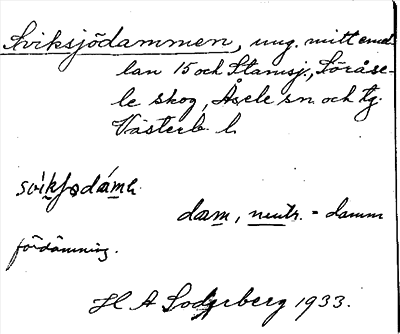 Sviksjödammen, ung. mitt emel-
lan 15 och Stamsj., Söråse-
le skog, Åsele sn och tg.
Västerb. l.
dam, neutr. = damm
fördämning.
H A Söderberg 1933.